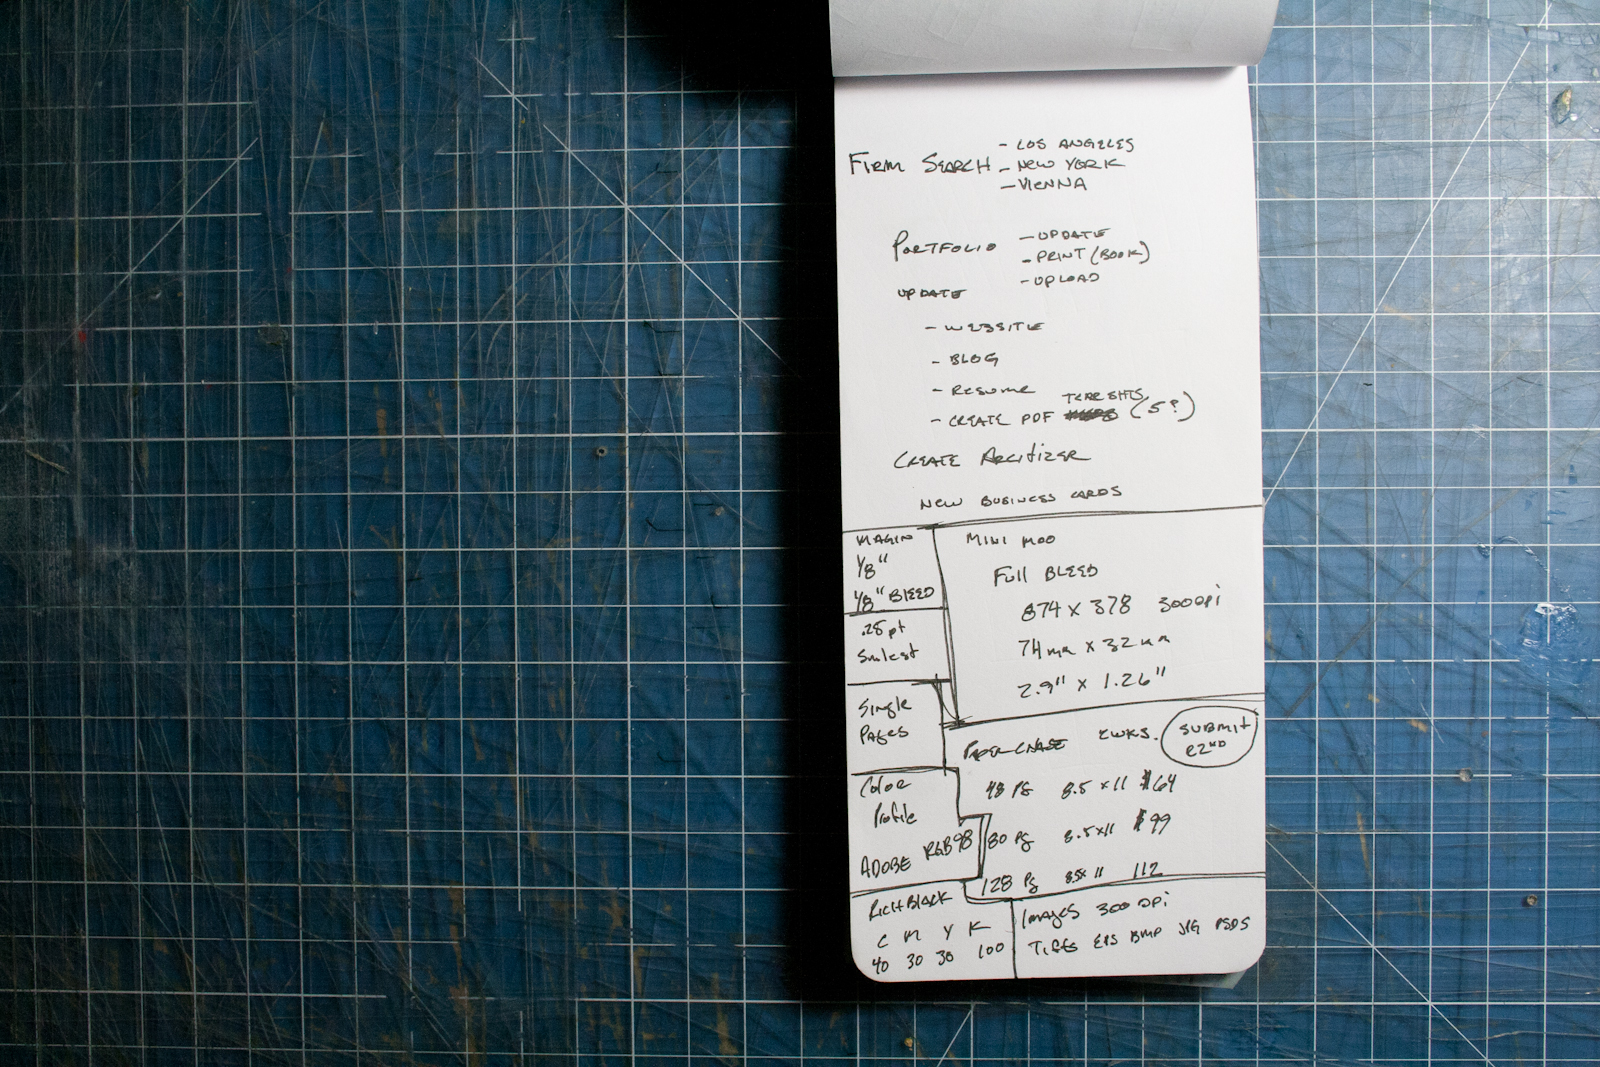 - LOS ANGELES
FIRM SEARCH - NEW YORK
- VIENNA
PORTFOLIO - UPDATE
- PRINT (BOOK)
- UPLOAD
UPDATE
- WEBSITE
- BLOG
- RESUME
- CREATE PDF TEARSHTS (5?)
CREATE ARCITIZER
NEW BUSINESS CARDS
MARGIN
1/8"
1/8" BLEED
.25 pt
Smlest
Single
Pages
Color
Profile
ADOBE RGB98
RICH BLACK
C M Y K
40 30 30 100
MINI MOO
Full BLEED
874 x 378 300 DPi
74mm x 32mm
2.9" x 1.26"
PAPER CHASE 2WKS. SUBMIT
22ND
48 Pg 8.5 x 11 $64
80 Pg 8.5 x 11 $99
128 Pg 8.5x 11 112
Images 300 DPi
Tiffs EPS BMP JPG PSDS